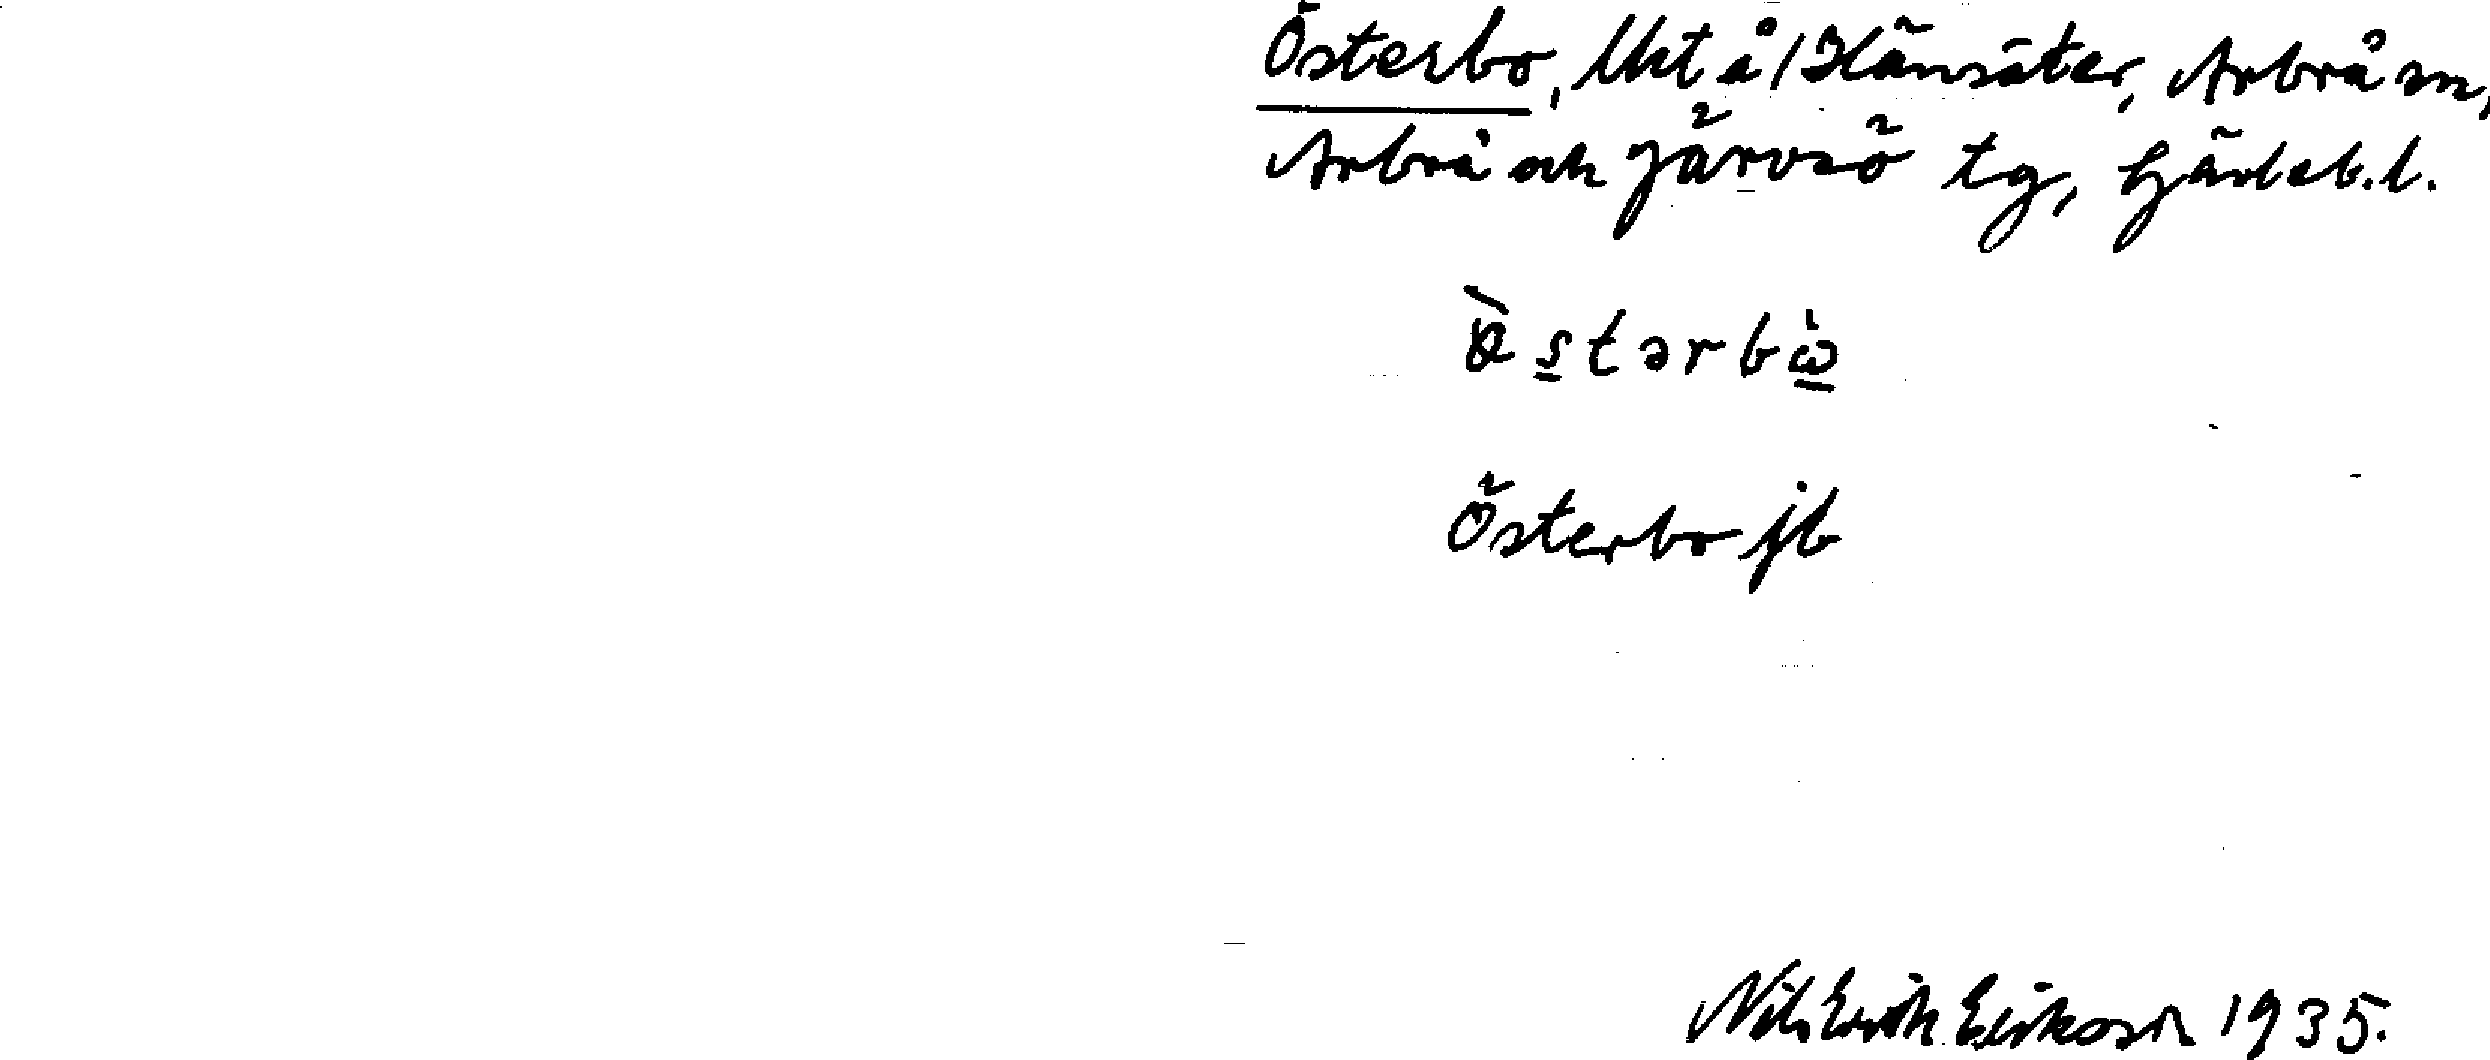 Österbo, Uht å/Hänsäter, Arbrå sn,
Arbrå och Järvsö tg, Gävleb.l.
stərb
Österbo jb
Nils Erik Eriksson 1935.